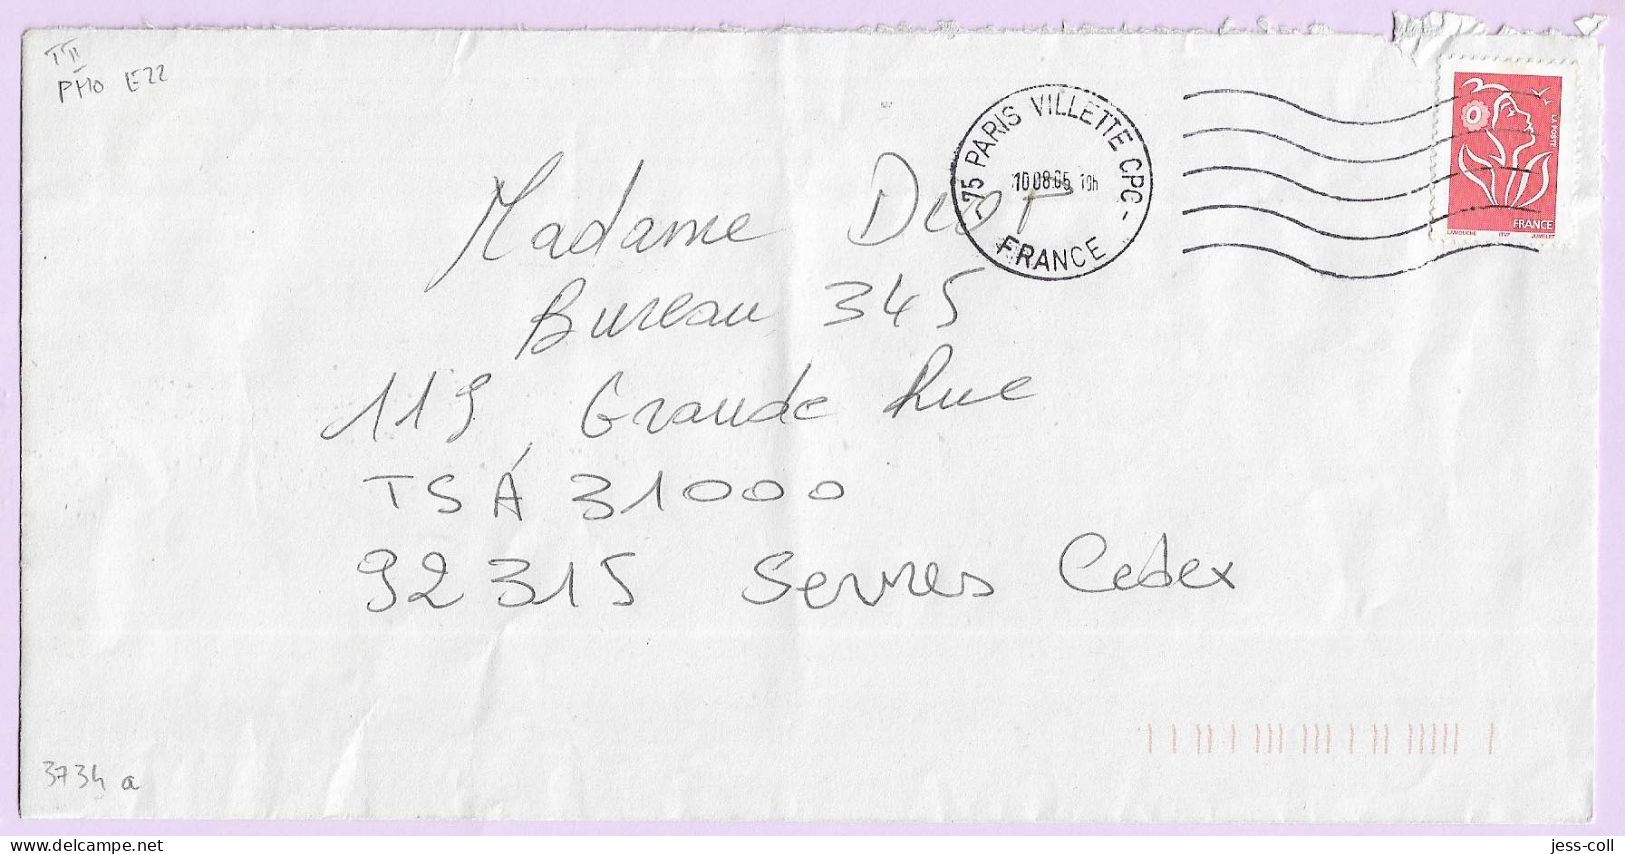 TII
PHO E22
75 PARIS VILLETTE CPC
10 08 05 19h
FRANCE
LA POSTE
FRANCE
LAMOUCHE ITVF JUMELET
Madame
Bureau 345
119, Grande Rue
TSA 31000
92315 Sevres Cedex
3734 a
jess-coll